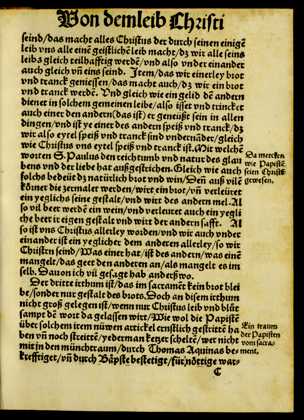 Von dem leib Christi
seind/das macht alles Christus der durch seinen einigē
leib vns alle eine geistliche leib macht/dz wir alle seins
leibs gleich teilhafftig werdē/vnd also vnder einander
auch gleich vn̄ eins seind. Item/das wir einerley brot
vnd tranck geniessen/das macht auch/dz wir ein brot
vnd tranck werdē. Vnd gleich wie ein gelid dē andern
dienet in solchem gemeinen leibe/also isset vnd trincket
auch einer den andern(das ist)er geneüst sein in allen
dingen/vnd ist ye einer des andern speiß vnd tranck/dz
wir also eytel speiß vnd tranck sind vndernāder/gleich
wie Christus vns eytel speiß vnd tranck ist. Mit welchē
worten S. Paulus den reichtumb vnd natur des glau
bens vnd der liebe hat außgestrichen. Gleich wie auch
solchs bedeüt dz natürlich brot vnd win/Denn auß vil
körner die zermalet werden/wirt ein brot/vn̄ verleüret
ein yeglichs seine gestalt/vnd wirt des andern mel. Al
so vil beer werdē ein wein/vnd verleüret auch ein yegli
che beer ir eigen gestalt vnd wirt der andern safft. Al
so ist vns Christus allerley worden/vnd wir auch vnder
einander ist ein yeglicher dem anderen allerley/so wir
Christen sein/Was einer hat/ist des andern/was einē
mangelet/das geet den anderen an/als mangele es im
selbs. Dauon ich vil gesagt hab anderßwo.
Der dritte irthum ist/das im sacramēt kein brot blei
be/sonder nur gestalt des brots. Doch an disem irthum
nicht groß gelegen ist/wenn nur Christus leib vnd blůt
sampt dē wort da gelassen wirt/Wie wol die Papistē
über solchem irem nüwen artickel ernstlich gestrittē ha
ben vn̄ noch streittē/yederman ketzer scheltē/wer nicht
mit in den münchtraum/durch Thomas Aquinas be-
krefftiget/vn̄ durch Bäpste bestetiget/für nöttige war-
C
Da mercke
wie Papistē
seien Christē
gewesen.
Ein traum
der Papisten
vom sacra-
ment.